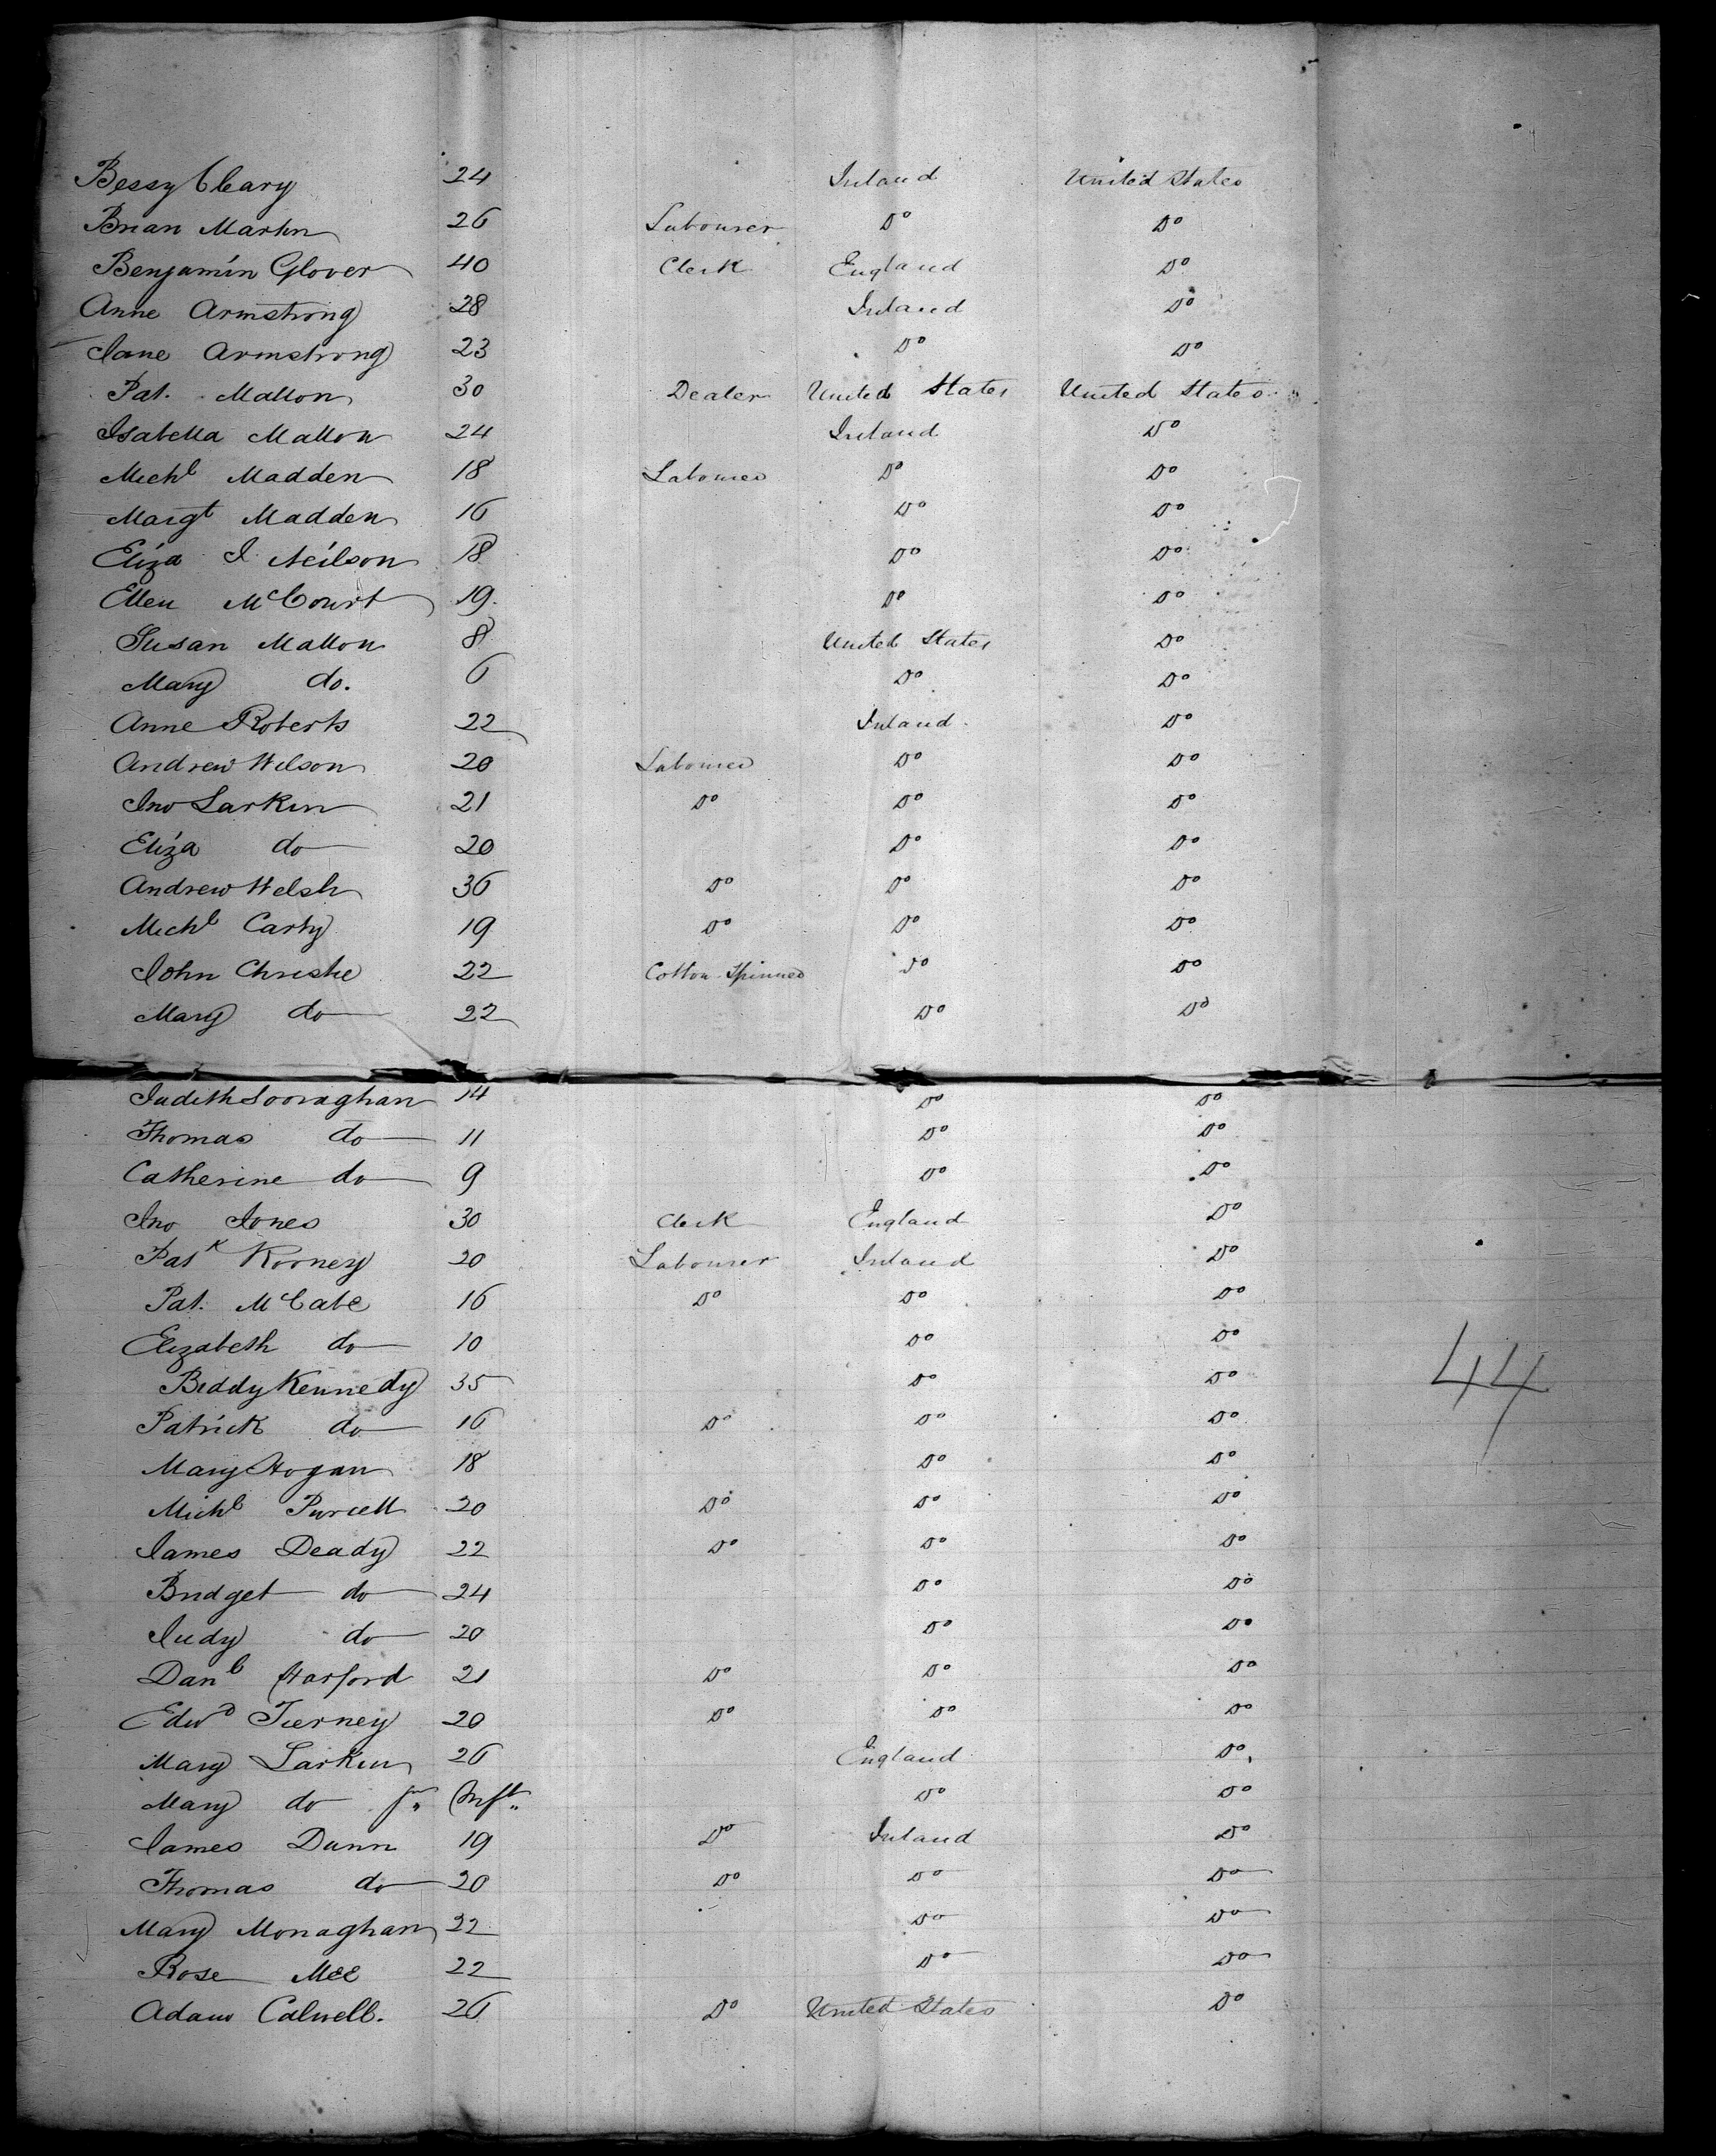 Bessy Cleary 24 Ireland United States
Brian Martin 26 Labourer Do Do
Benjamin Glover 40 Clerk England Do
Anne Armstrong 28 Ireland Do
Jane Armstrong 23 Do Do
Pat. Mallon 30 Dealer United States United States
Isabella Mallon 24 Ireland Do
Michl Madden 18 Labourer Do Do
Margt Madden 16 Do Do
Eliza J. Neilson 18 Do Do
Ellen McCourt 19. Do Do
Susan Mallon 8 United States Do
Mary do. 6 Do Do
Anne Roberts 22 Ireland Do
Andrew Wilson 20 Labourer Do Do
Jno Larkin 21 Do Do Do
Eliza do 20 Do Do
Andrew Welsh 36 Do Do Do
Michl Carty 19 Do Do Do
John Christie 22 Cotton Spinner Do Do
Mary do 22 Do Do
Judith 14 Do Do
Thomas do 11 Do Do
Catherine do 9 Do Do
Jno Jones 30 Clerk England Do
Patk Rooney 20 Labourer Ireland Do
Pat. McCabe 16 Do Do Do
Elizabeth do 10 Do Do
Biddy Kennedy 35 Do Do
Patrick do 16 Do Do Do
Mary Hogan 18 Do Do
Michl Purcell 20 Do Do Do
James Deady 22 Do Do Do
Bridget do 24 Do Do
Judy do 20 Do Do
Danl Harford 21 Do Do Do
Edwd Tierney 20 Do Do Do
Mary Larkin 26 England Do
Mary do Jr Inft Do Do
James Dunn 19 Do Ireland Do
Thomas do 20 Do Do Do
Mary Monaghan 22 Do Do
Rose Mee 22 Do Do
Adam Calwell. 26 Do United States Do
44